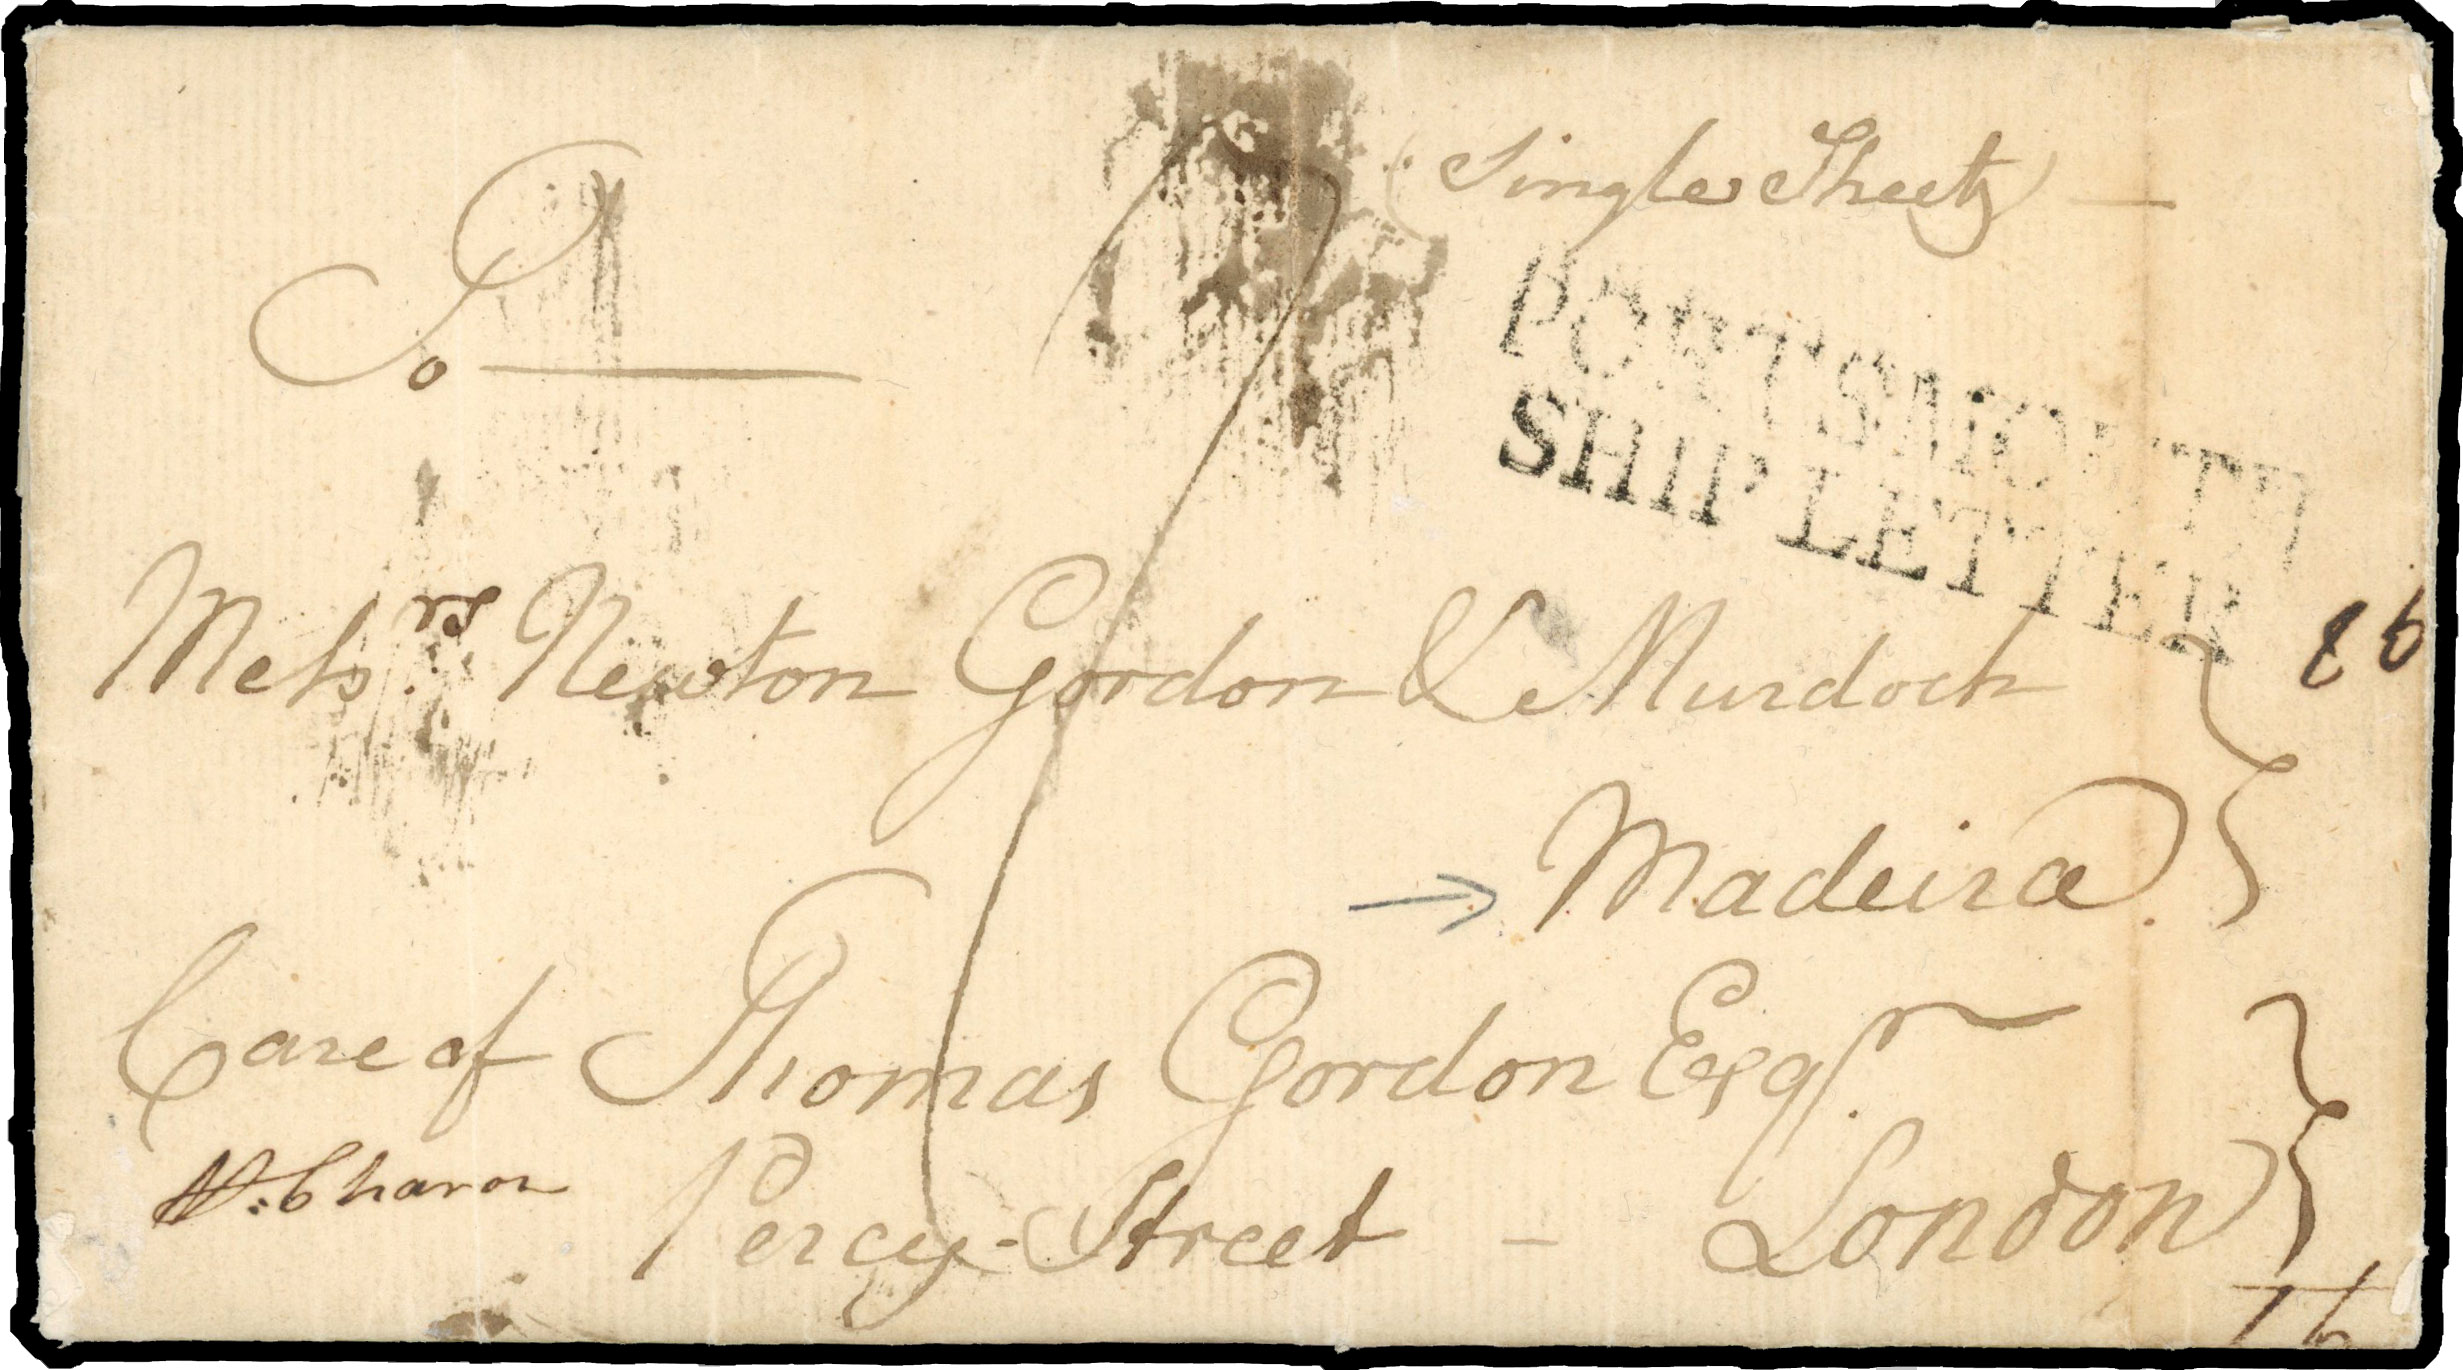 (Single Sheet) —
To
PORTSMOUTH
SHIP LETTER
Mess.rs Newton Gordon & Murdoch
86
Madeira
Care of Thomas Gordon Esqr.
Charon
Percy-Street — London
16